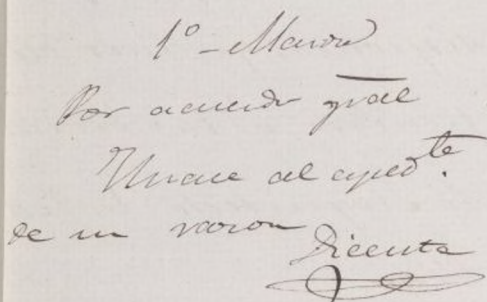 1º - Marzo
Por acuerdo gral
Unase al exped.te
de su razon
Dicenta